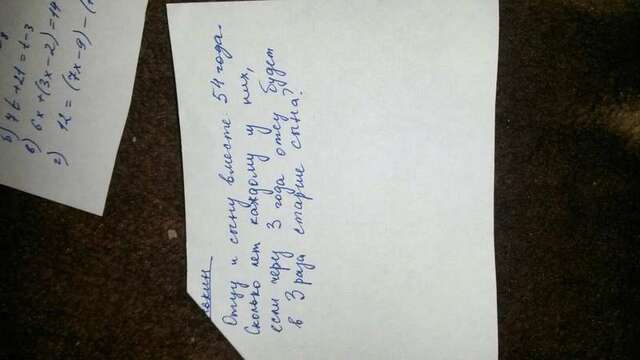 б) 7b+21=1-3
в) 6x+(3x-2)=14
г) 12=(7x-9)-(
Отцу и сыну вместе 54 года.
Сколько лет каждому из них,
если через 3 года отец будет
в 3 раза старше сына?